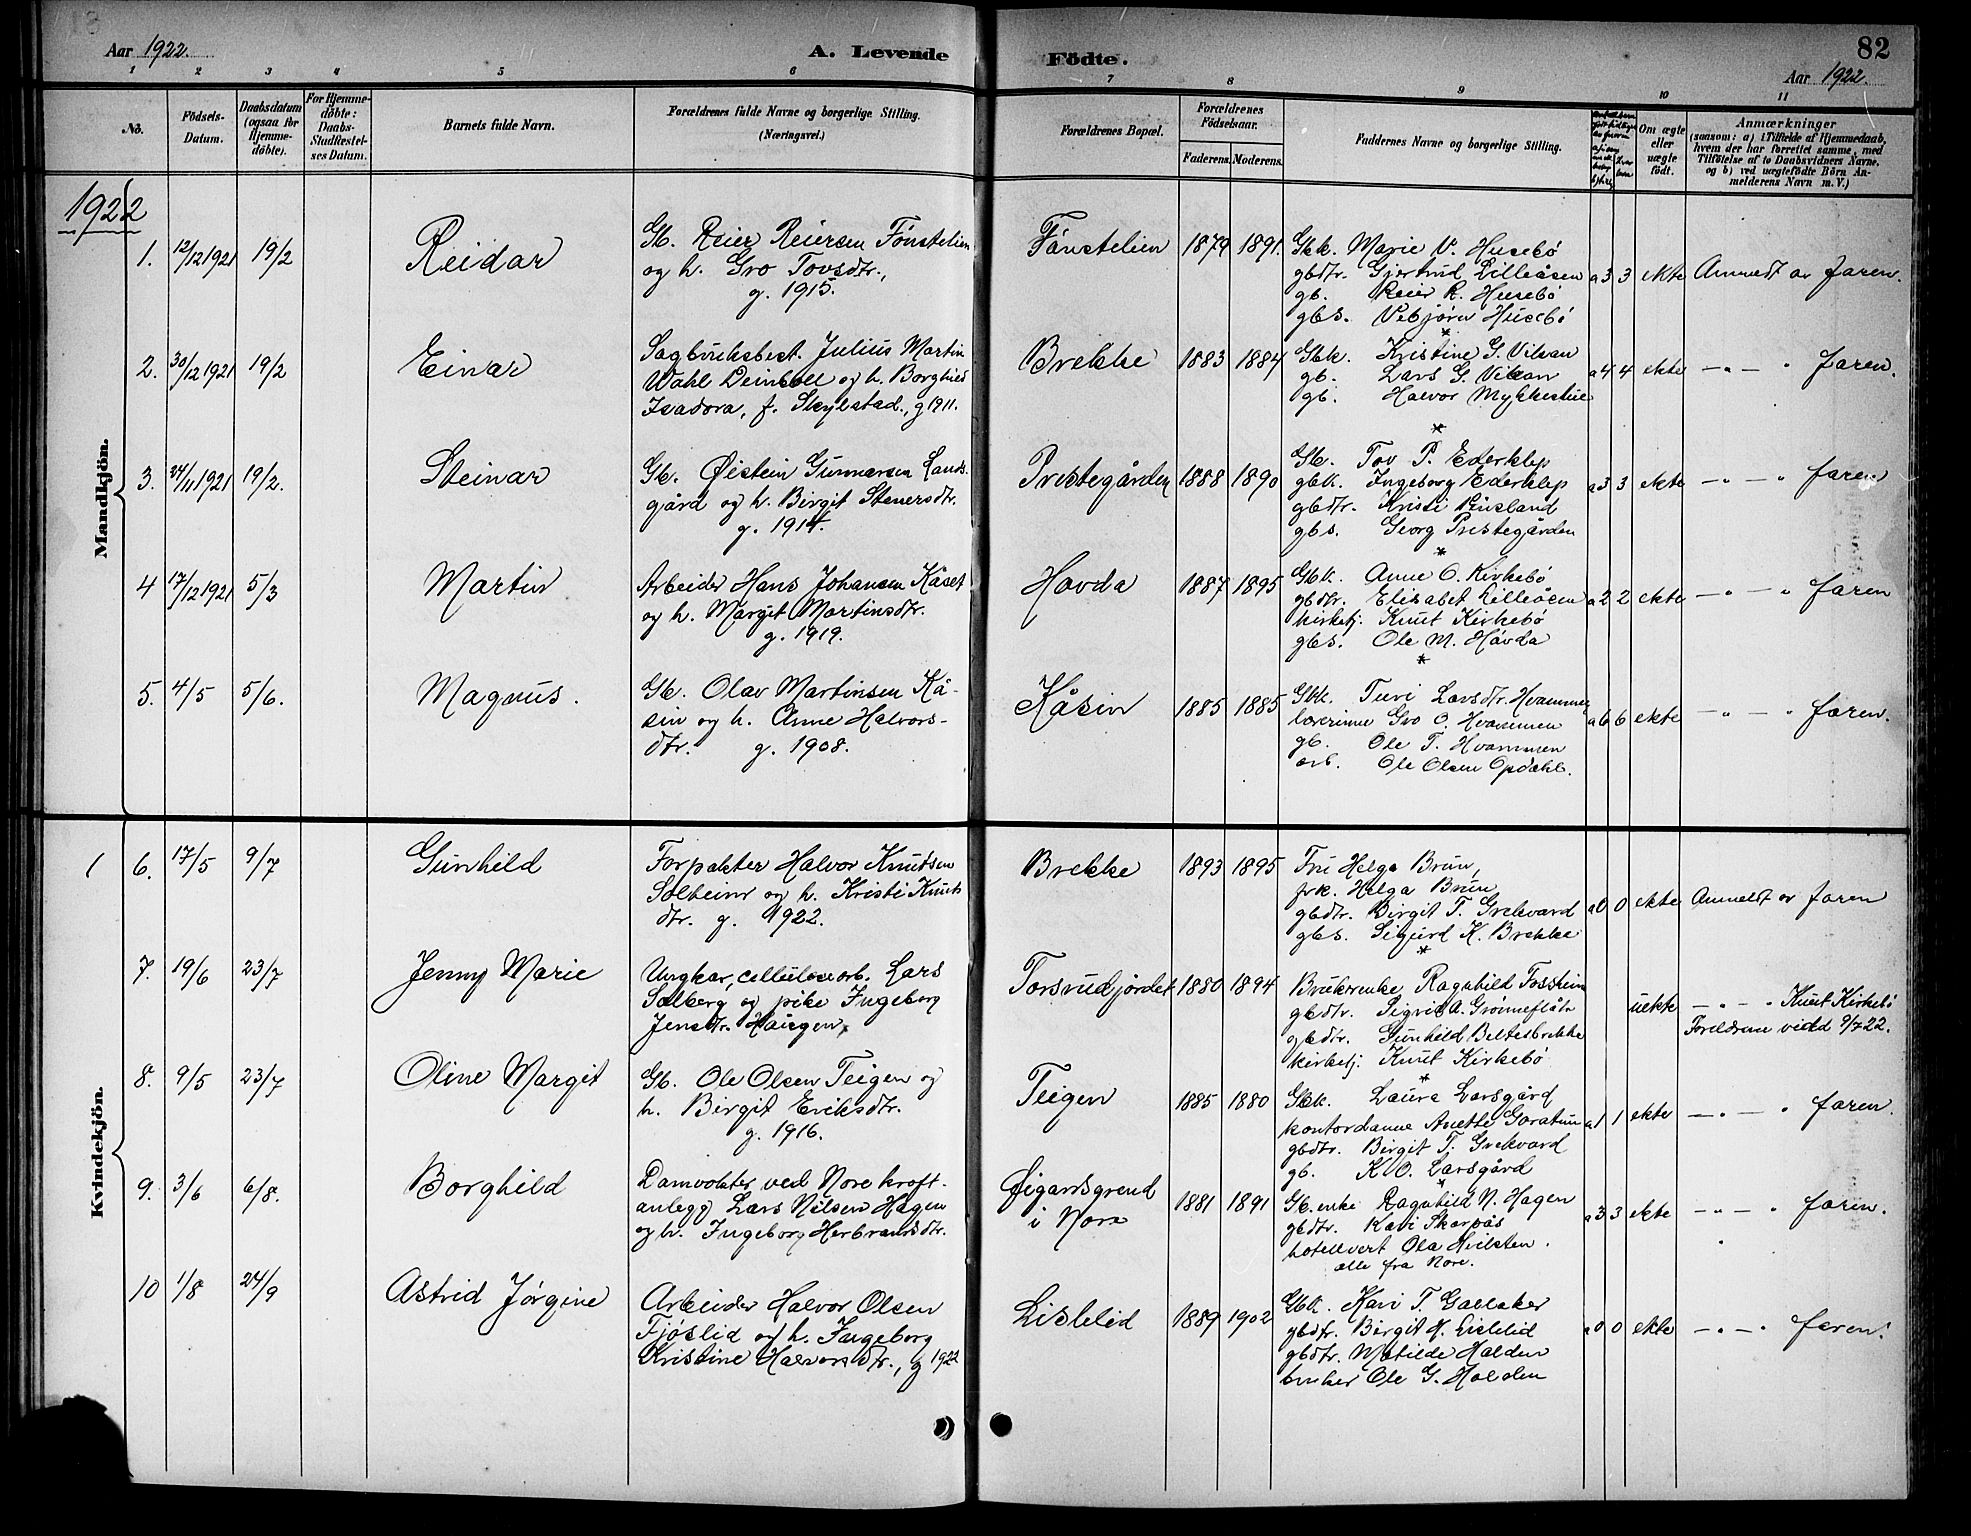 Aar 1922.
A. Levende
Födte.
82
Aar 1922.
1 2 3 4 5 6 7 8 9 10 11
No.
Födsels-Datum.
Daabsdatum (ogsaa for Hjemme-döbte).
For Hjemme-döbte: Daabs-Stadfæstel-ses Datum.
Barnets fulde Navn.
Forældrenes fulde Navne og borgerlige Stilling. (Næringsvei.)
Forældrenes Bopæl.
Forældrenes Födselsaar.
Faderens. Moderens.
Faddernes Navne og borgerlige Stilling.
Om ægte eller uægte födt.
Anmærkninger
(saasom: a) i Tilfælde af Hjemmedaab,
hvem der har forrettet samme, med
Tilföielse af to Daabsvidners Navne,
og b) ved uægtefödte Börn An-
melderens Navn m. V.)
1922
Mandkjön.
1. 12/12 1921 19/2 Reidar
Gb. Reier Reiersen Fönstelien
og h. Gro Tovsdtr.,
g. 1915.
Fönstelien 1879 1891.
Gbk. Marie V. Husebö
gbdtr. Gjertrud Lilleåsen
gb. Reier R. Husebö
gbs. Vebjörn Husebö
a3 3 ekte Anmeldt av faren.
2. 30/12 1921 19/2 Einar
Sagbruksbest. Julius Martin
Wahl Deinboll og h. Borghild
Isadora, f. Skylstad., g 1911.
Brekke 1883 1884
Gbk. Kristine G. Vilvan
gb. Lars G. Vikan
gb. Halvor Mykkestue
a4 4 ekte — " — " faren.
3. 24/11 1921 19/2. Steinar
Gb. Øistein Gunnarsen Lands-
gård og h. Birgit Stenersdtr.
g. 1914.
Prestegården 1888 1890
Gb. Tov P. Ederklep
gbk. Ingeborg Ederklep
gbdtr. Kristi
gbs. Georg Prestegården
a3 3 ekte — " — " faren
4 17/12 1921 5/3 Martin
Arbeider Hans Johansen Kåset
og h. Margit Martinsdtr.
g. 1919.
Hovda 1887 1895
Gbk. Anne O. Kirkebö
gbdtr. Elisabet Lilleåsen
kirketj. Knut Kirkebö
gbs. Ole M. Hóvda
a2 2 ekte — " — " faren
5. 4/5 5/6. Magnus.
Gb. Olav Martinsen Kå-
sin og h. Anne Halvors-
dtr. g. 1908.
Kåsin 1885 1885
Gbk. Turi Larsdtr. Hvammen
lærerinne Gro O. Hvammen
gb. Ole T. Hvammen
arb. Ole Olsen Opdahl.
a6 6 ekte — " — " faren.
Kvindekjön.
1 6. 17/5 9/7 Gunhild
Forpakter Halvor Knutsen
Solheim og h. Kristi Knuts
dtr. g. 1922.
Brekke 1893 1895
Fru Helga Brun,
frk. Helga Brun
gbdtr. Birgit T. Grekvard
gbs. Sigurd K. Brekke
a0 0 ekte Anmeldt av faren
7. 19/6 23/7 Jenny Marie
Ungkar, cellulosearb. Lars
Solberg og pike Ingeborg
Jensdtr. Haugen,
Torsrudjordet 1880 1894
Brukerenke Ragnhild Fossheim
gbdtr. Sigrid A. Grönneflåta
gbdtr. Gunhild Beltesbrekke
kirketj. Knut Kirkebö
uekte — " — " Knut Kirkebö
Foreldrene viedd 9/7 22.
8. 9/5 23/7 Oline Margit
Gb. Ole Olsen Teigen og
h. Birgit Eriksdtr.
g. 1916.
Teigen 1885 1880
Gbk. Laura Larsgård
kontordame Anette Goratun
gbdtr. Birgit T. Grekvard
gb. K. O. Larsgård
a1 1 ekte — " — " faren.
9. 3/6 6/8. Borghild
Damvokter ved Nore kraft-
anlegg Lars Nilsen Hagen
og h. Ingeborg Herbrandsdtr.
Øigardsgrend
i Nore
1881 1891
Gb.enke Ragnhild N. Hagen
gbdtr. Kari Skarpås
hotellvert Ola
alle fra Nore.
a3 3 ekte — " — " faren.
10 1/8 24/9 Astrid Jórgine
Arbeider Halvor Olsen
Fjöslid og h. Ingeborg
Kristine Halvorsdtr., g 1922
Lislelid 1889 1902
Gbk. Kari T. Gallaker
gbdtr. Birgit H. Lislelid
gbdtr. Matilde Halden
bruker Ole G. Halden
a0 0 ekte — " — " faren.